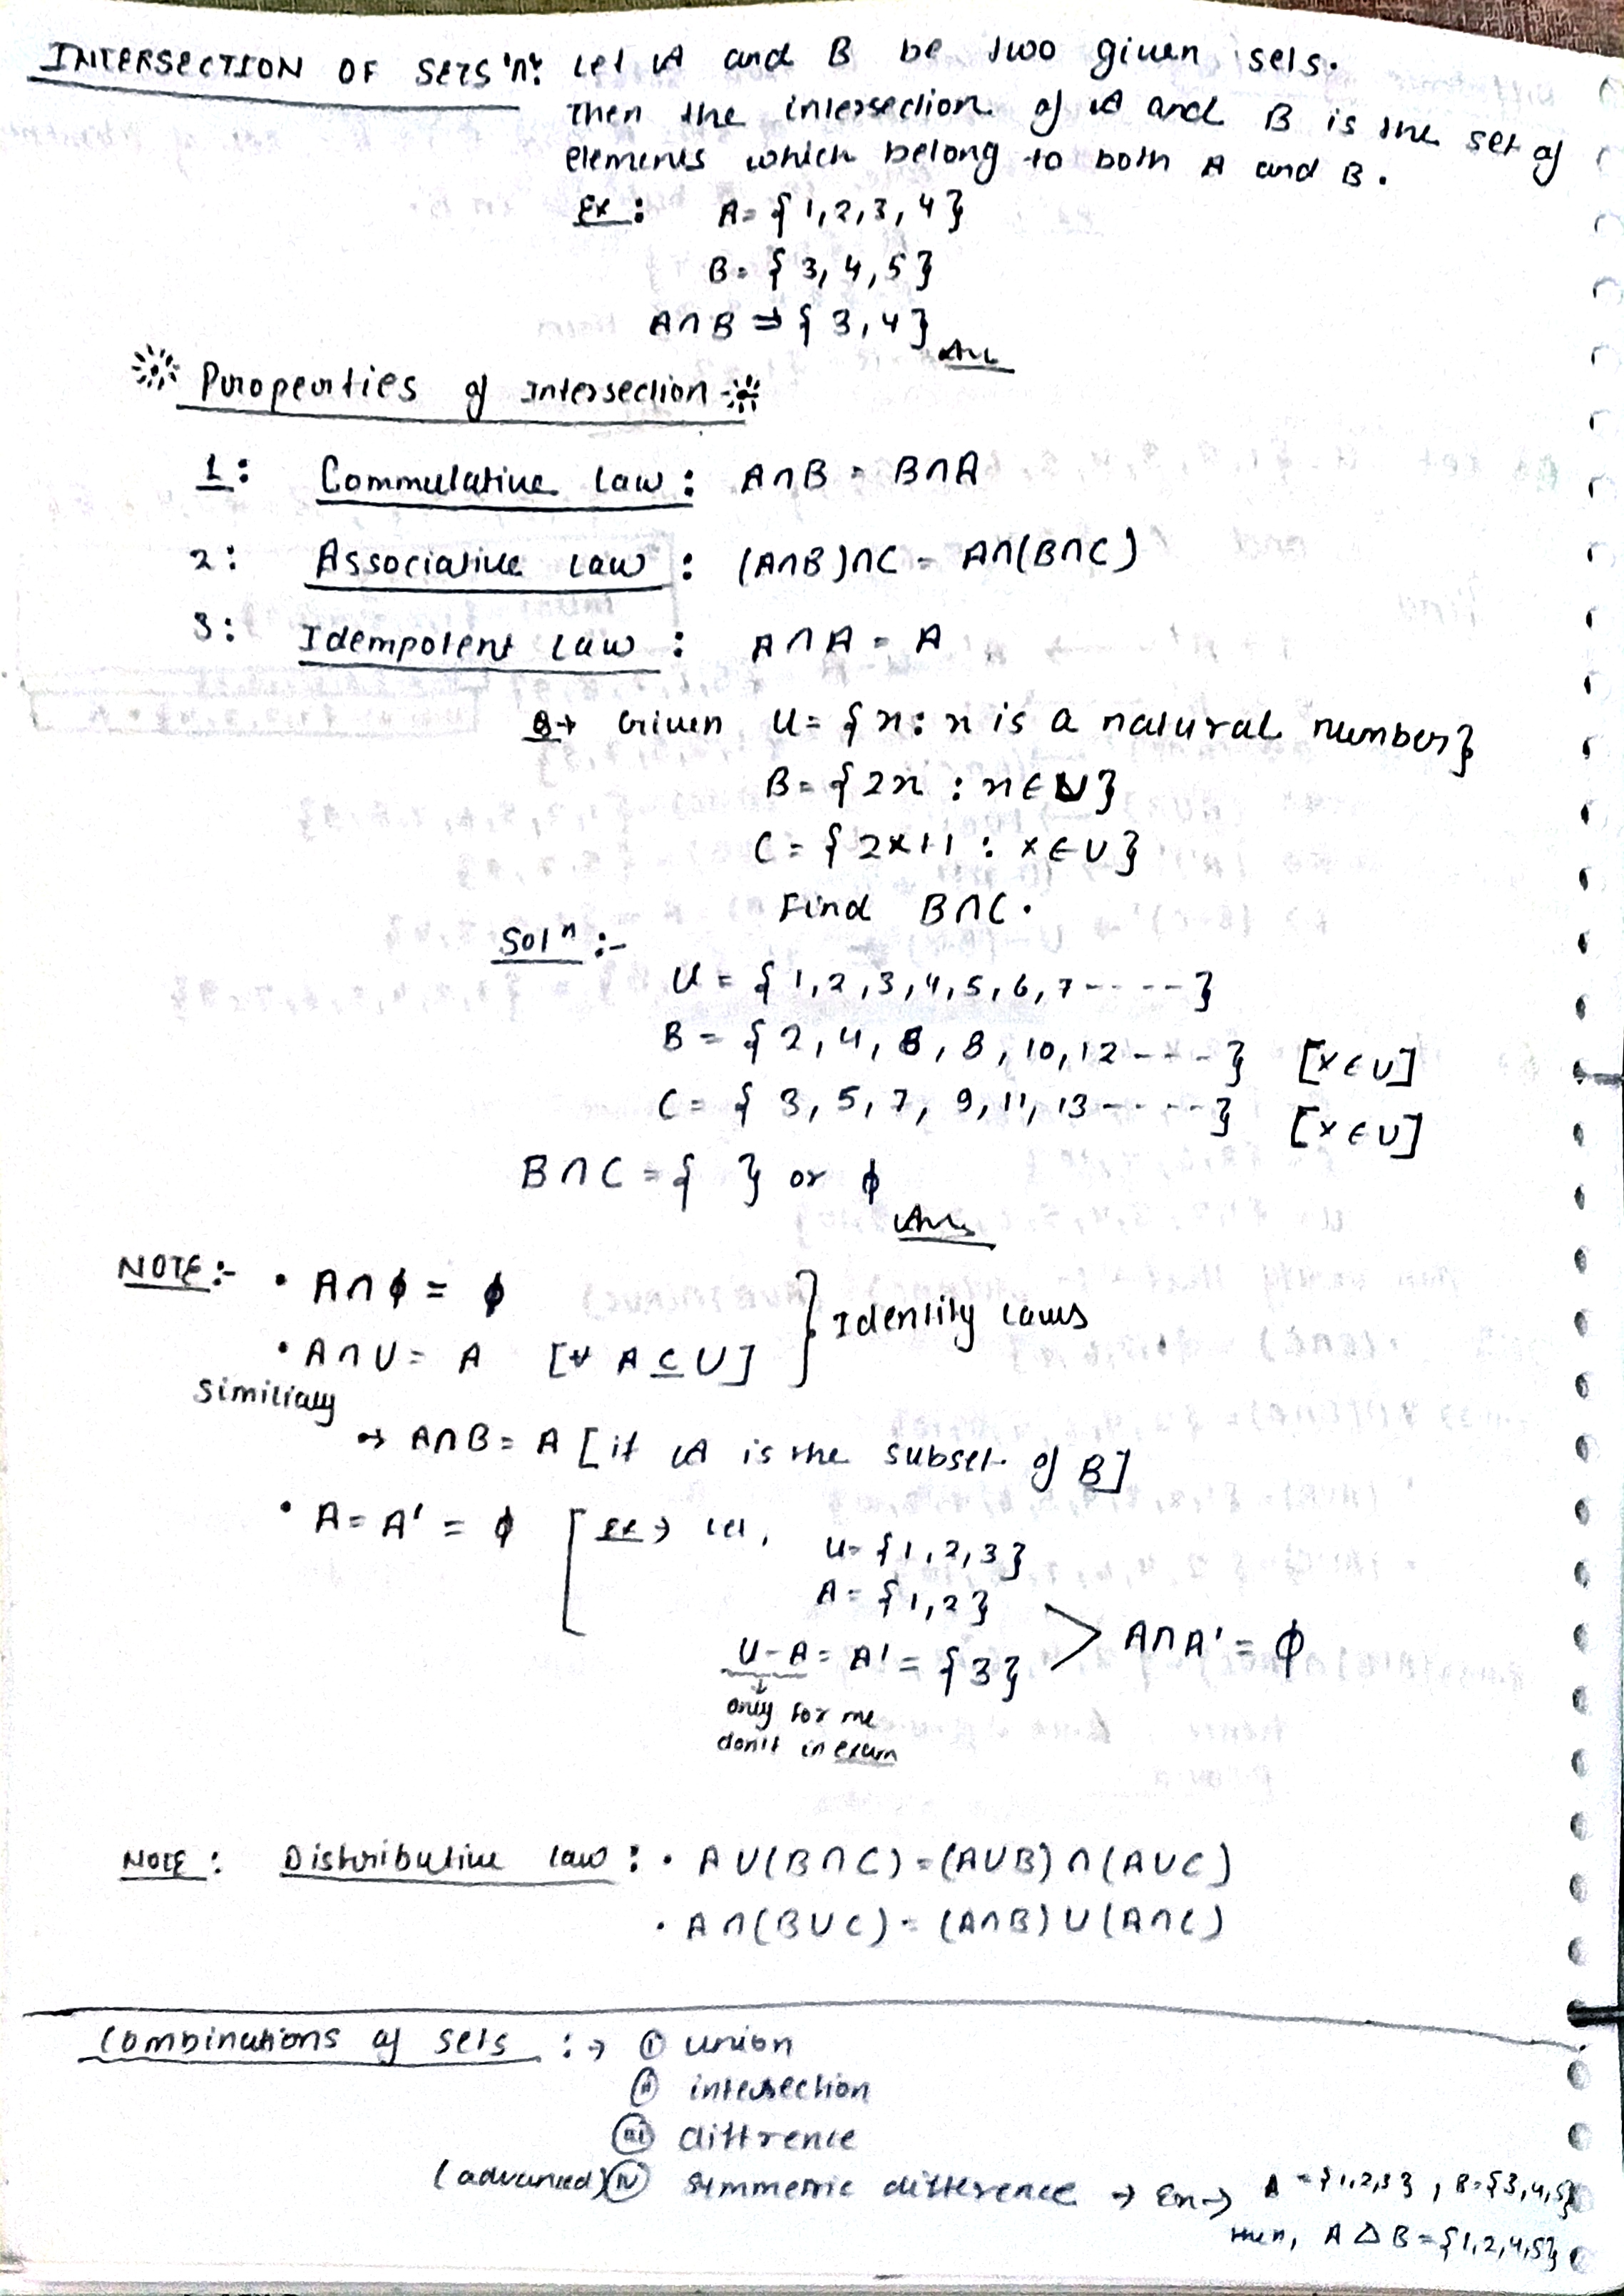 INTERSECTION OF SETS '∩': Let A and B be two given sets.
Then the intersection of A and B is the set of
elements which belong to both A and B.
Ex: A = {1,2,3,4}
B = {3,4,5}
A∩B ⇒ {3,4} Ans
Properties of Intersection
1: Commulative Law: A∩B = B∩A
2: Associative Law: (A∩B)∩C = A∩(B∩C)
3: Idempotent Law: A∩A = A
Q→ Given U = {x: x is a natural number}
B = {2x : x ∈ U}
C = {2x+1 : x ∈ U}
Find B∩C.
Solⁿ:-
U = {1,2,3,4,5,6,7----}
B = {2,4,6,8,10,12----} [x ∈ U]
C = {3,5,7,9,11,13-----} [x ∈ U]
B∩C = { } or ϕ Ans
NOTE:- • A∩ϕ = ϕ
• A∩U = A [∀ A ⊆ U] } Identity Laws
Similiary
→ A∩B = A [if A is the subset of B]
• A = A' = ϕ [Ex → let, U = {1,2,3}
A = {1,2}
U-A = A' = {3} > A∩A' = ϕ
↓
only for me
don't in exam
NOTE: Distributive law: • A∪(B∩C) = (A∪B)∩(A∪C)
• A∩(B∪C) = (A∩B)∪(A∩C)
Combinations of sets :→ (i) union
(ii) intersection
(iii) diffrence
(advanced) (iv) symmetric difference → Ex → A = {1,2,3}, B = {3,4,5}
then, A △ B = {1,2,4,5}